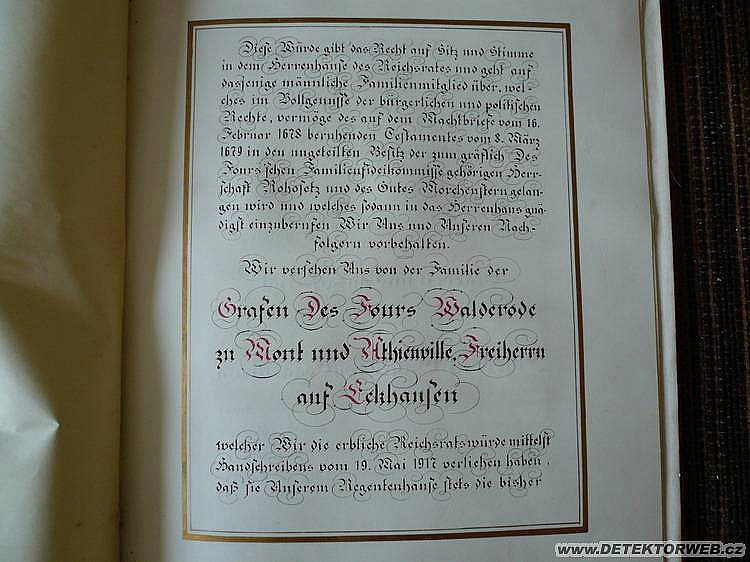 Diese Würde gibt das Recht auf Sitz und Stimme
in dem Herrenhause des Reichsrates und geht auf
dasjenige männliche Familienmitglied über, wel-
ches im Vollgenusse der bürgerlichen und politischen
Rechte, vermöge des auf dem Machtbriefe vom 16.
Februar 1678 beruhenden Testamentes vom 8. März
1679 in den ungeteilten Besitz der zum gräflich Des
Fours'schen Familienfideikommisse gehörigen Herr-
schaft Rohosetz und des Gutes Morchenstern gelan-
gen wird und welches sodann in das Herrenhaus gnä-
digst einzuberufen Wir Uns und Unseren Nach-
folgern vorbehalten.
Wir versehen Uns von der Familie der
Grafen Des Fours Walderode
zu Mont und Athienville, Freiherrn
auf Eckhausen
welcher Wir die erbliche Reichsratswürde mittelst
Handschreibens vom 19. Mai 1917 verliehen haben,
daß sie Unserem Regentenhause stets die bisher
www.DETEKTORWEB.cz